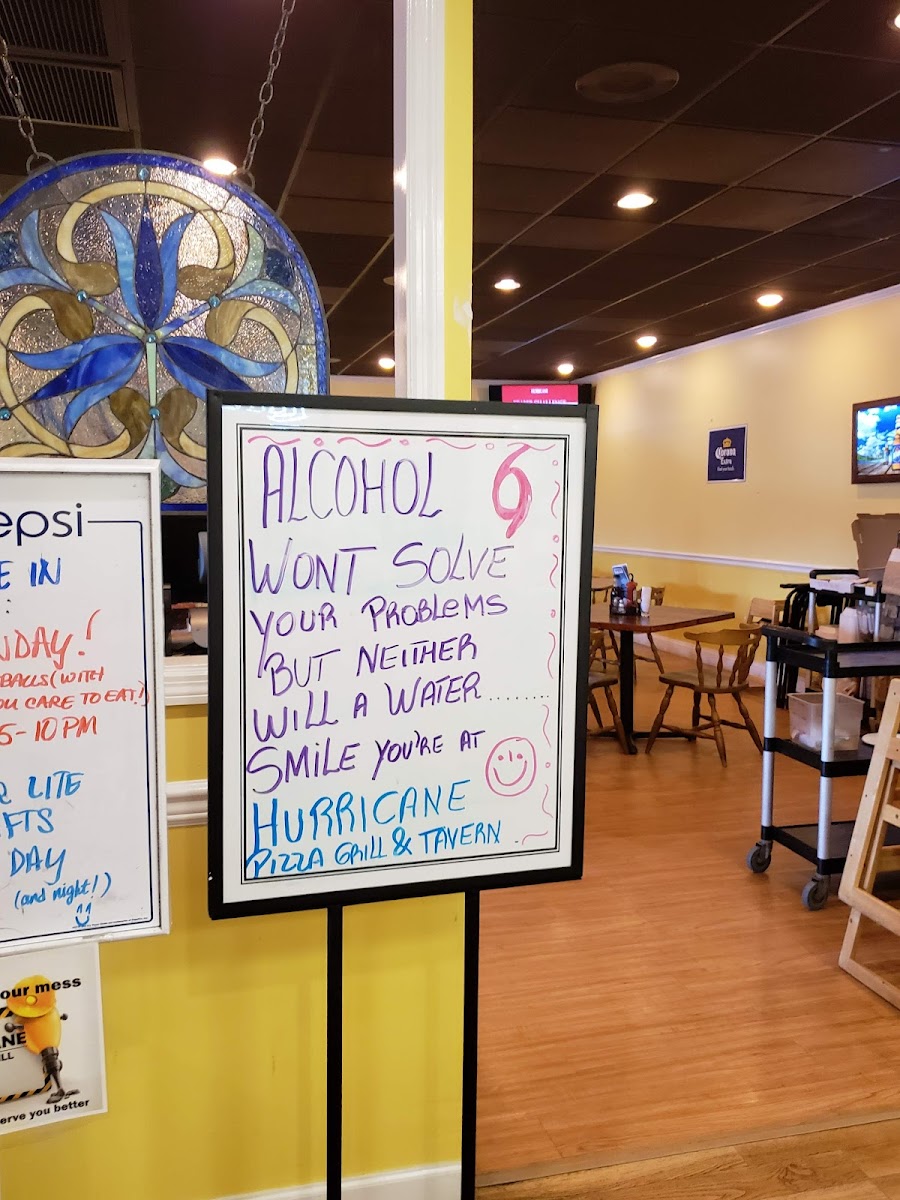 ALCOHOL
WONT SOLVE
YOUR PROBLEMS
BUT NEITHER
WILL A WATER.........
SMILE YOU'RE AT
HURRICANE
PIZZA GRILL & TAVERN
epsi
E IN
NDAY!
BALLS (WITH
OU CARE TO EAT!)
5-10 PM
R LITE
FTS
DAY
(and night!)
our mess
NE
LL
erve you better
Corona
Extra